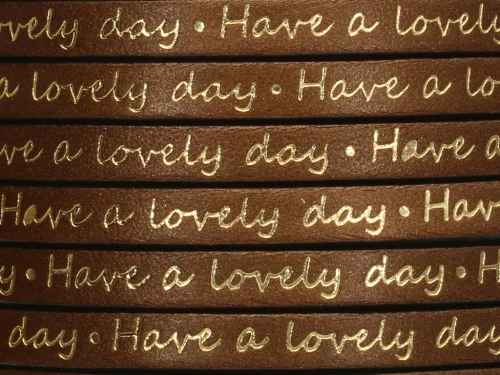 ovely day • Have a lovely
a lovely day • Have a lo
ve a lovely day • Have a
Have a lovely day • Hav
y • Have a lovely day • H
day • Have a lovely day